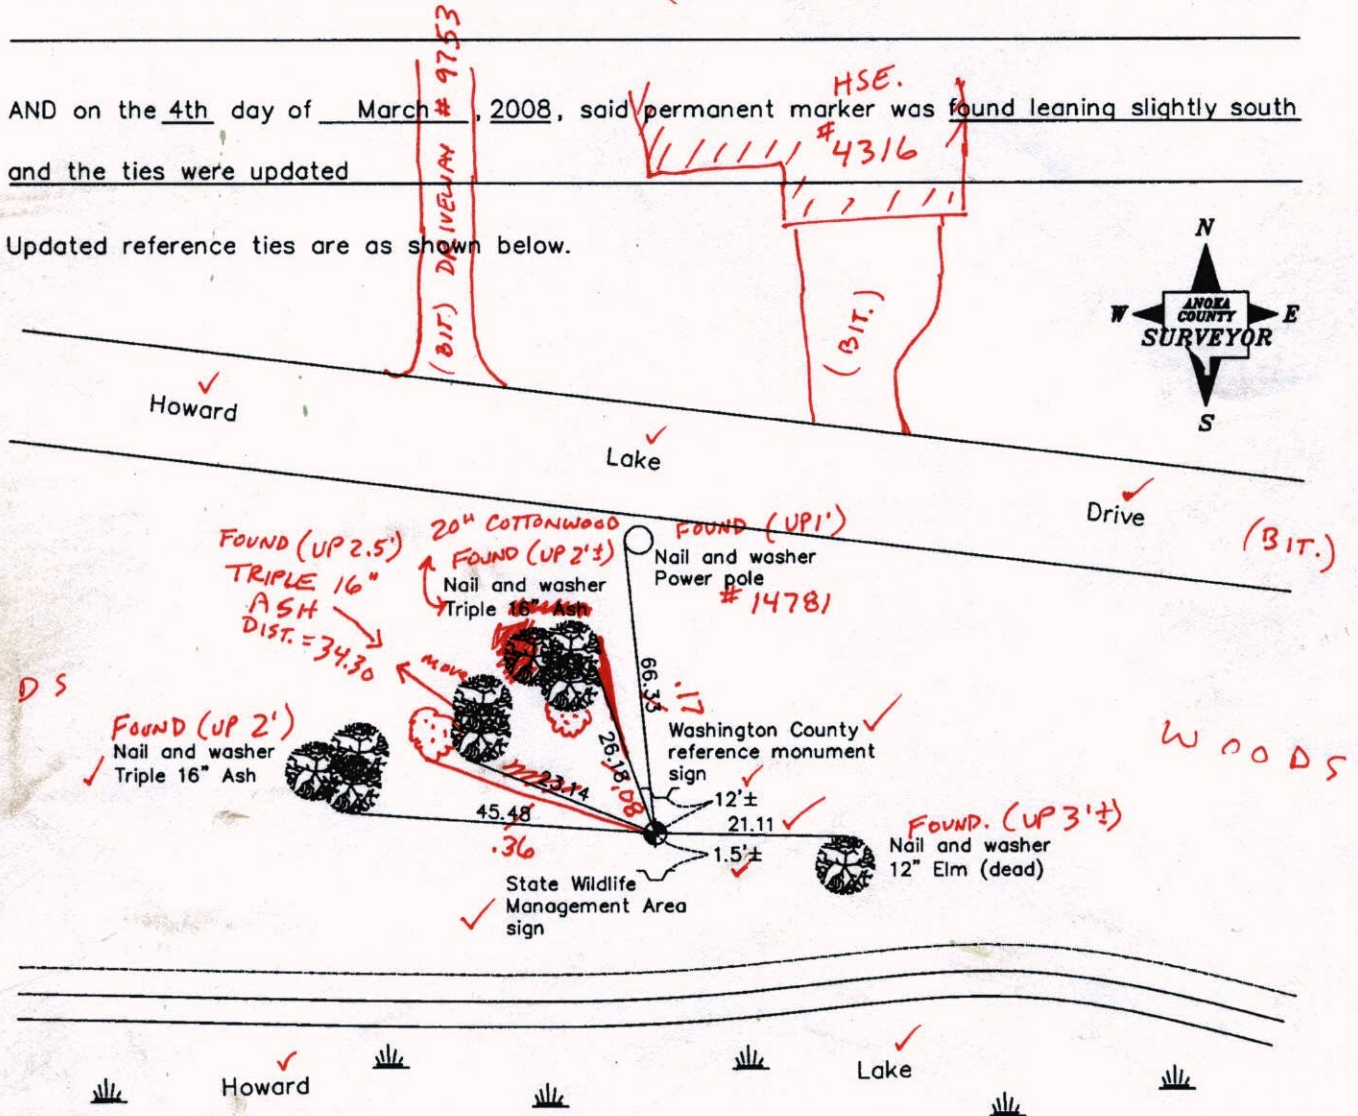 AND on the 4th day of March, 2008, said permanent marker was found leaning slightly south
and the ties were updated
Updated reference ties are as shown below.
(BIT.) DRIVEWAY # 9753
HSE.
# 4316
(BIT.)
N
W
ANOKA
COUNTY
SURVEYOR
E
S
Howard
Lake
Drive
(BIT.)
FOUND (UP 2.5')
TRIPLE 16"
ASH
DIST. = 34.30
20" COTTONWOOD
FOUND (UP 2'±)
Nail and washer
Triple 16" Ash
FOUND (UP 1')
Nail and washer
Power pole
# 14781
move
66.33
.17
26.18
.08
23.14
45.48
.36
DS
FOUND (UP 2')
Nail and washer
Triple 16" Ash
Washington County
reference monument
sign
12'±
21.11
1.5'±
WOODS
FOUND. (UP 3'±)
Nail and washer
12" Elm (dead)
State Wildlife
Management Area
sign
Howard
Lake